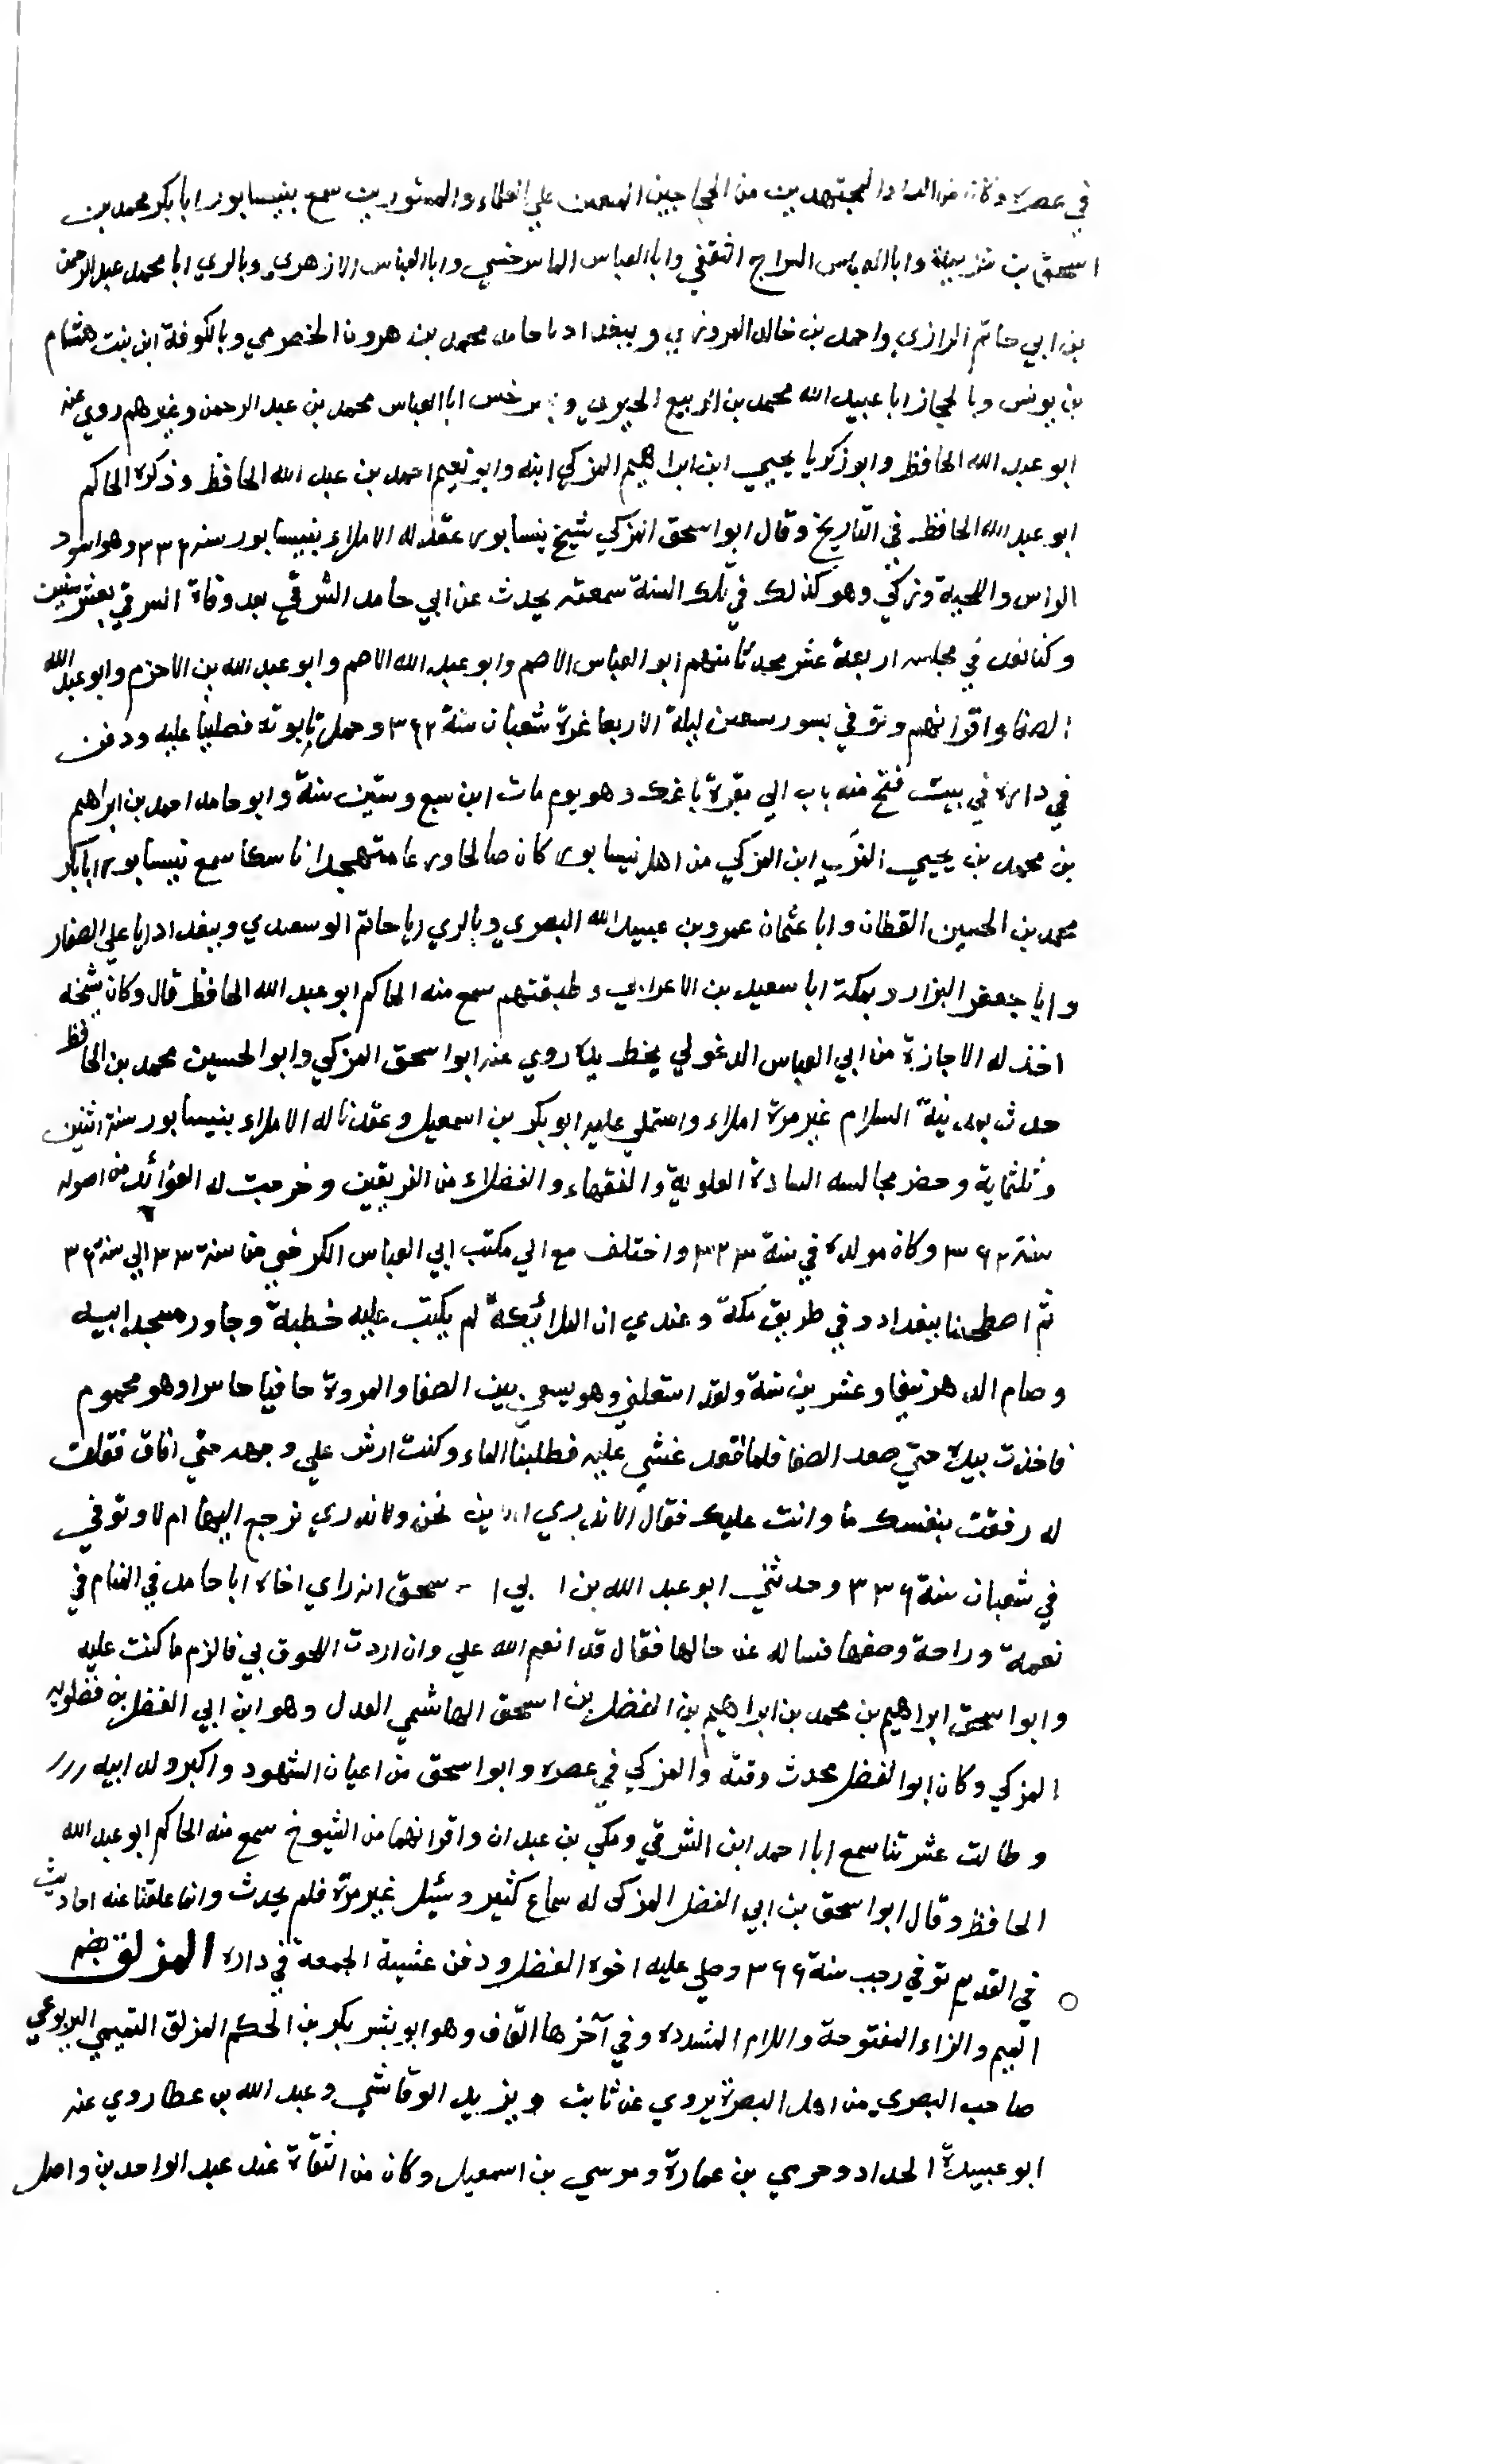 في عصره وكان من العباد المجتهدين من الحجاجين المنفقين علي العلماء والمستورين سمع بنيسابور ابا بكر محمد بن
اسحق بن خزيمة وابا العباس السراج الثقفي وابا العباس الماسرخسي وابا العباس الازهري وبالري ابا محمد عبد الرحمن
بن ابي حاتم الرازي واحمد بن خالد المروزي وببغداد ابا حامد محمد بن هرون الحضرمي وبالكوفة ابن بنت هشام
بن يونس وبالحجاز ابا عبيد الله محمد بن الربيع الجيزي وبسرخس ابا العباس محمد بن عبد الرحمن وغيرهم روي عنه
ابو عبد الله الحافظ وابو زكريا يحيي ابن ابراهيم المزكي ابنه وابو نعيم احمد بن عبد الله الحافظ وذكره الحاكم
ابو عبد الله الحافظ في التاريخ وقال ابو اسحق المزكي شيخ نيسابور عقد له الاملاء بنيسابور سنة ٣٣٦ وهو اسود
الراس واللحية وزكي وهو كذلك في تلك السنة سمعته يحدث عن ابي حامد الشرقي بعد وفاة الشرقي بعشر سنين
وكنا نعد في مجلسه اربعة عشر محدثا منهم ابو العباس الاصم وابو عبد الله الاصم وابو عبد الله بن الاخرم وابو عبد الله
الصفار واقرانهم وتوفي بسور سعين ليلة الاربعا غرة شعبان سنة ٣٦٢ وحمل تابوته فصلينا عليه ودفن
في داره في بيت فتح منه باب الي مقبرة باغك وهو يوم مات ابن سبع وستين سنة وابو حامد احمد بن ابراهيم
بن محمد بن يحيي المزكي ابن المزكي من اهل نيسابور كان صالحا ورعا متهجدا ناسكا سمع نيسابور ابا بكر
محمد بن الحسين القطان وابا عثمان عمرو بن عبيد الله البصري وبالري ابا حاتم الوسعدي وببغداد ابا علي الصفار
وابا جعفر البزار وبمكة ابا سعيد بن الاعرابي وطبقتهم سمع منه الحاكم ابو عبد الله الحافظ قال وكان شيخه
اخذ له الاجازة من ابي العباس الدغولي بخط يده روي عنه ابو اسحق المزكي وابو الحسين محمد بن الحافظ
حدث بمدنية السلام غير مرة املاء واستملي عليه ابو بكر بن اسمعيل وعقدنا له الاملاء بنيسابور سنة اثنين
وثلثماية وحضر مجالسه السادة العلوية والفقهاء والفضلاء من الفريقين وخرجت له الفوائد من اصوله
سنة ٣٦٢ وكان مولده في سنة ٣٢٣ واختلف مع الي مكتب ابي العباس الكرخي من سنة ٣٣ الي سنة ٣٦
ثم اصطحبنا ببغداد وفي طريق مكة وعندي ان الملائكة لم يكتب عليه خطية وجاور مسجد ابيه
وصام الدهر نيفا وعشرين سنة ولقد استعلني وهو يسعي بين الصفا والمروة حافيا حاسرا وهو محموم
فاخذت بيده حتي صعد الصفا فلما قعد غشي عليه فطلبنا الماء وكنت ارش علي وجهه حتي افاق فقلت
له رفقت بنفسك ما وانت عليك فقال الا تدري اين نحن ولا ندري نرجع اليها ام لا وتوفي
في شعبان سنة ٣٣٦ وحدثني ابو عبد الله بن ابي اسحق انه راي اخاه ابا حامد في المنام في
نعمة وراحة وصفها فساله عن حالها فقال قد انعم الله علي وان اردت اللحوق بي فالزم ما كنت عليه
وابو اسحق ابراهيم بن محمد بن ابراهيم بن الفضل بن اسحق الهاشمي العدل وهو ابن ابي الفضل بن فضلويه
المزكي وكان ابو الفضل محدث وقته والمزكي في عصره وابو اسحق من اعيان الشهود واكبر ولد ابيه
وطالت عشرتنا سمع ابا احمد ابن الشرقي ومكي بن عبدان واقرانهما من الشيوخ سمع منه الحاكم ابو عبد الله
الحافظ وقال ابو اسحق بن ابي الفضل المزكي له سماع كثير وسئيل غير مرة فلم يحدث وانما علقنا عنه احاديث
في القديم توفي رجب سنة ٣٦٦ وصلي عليه اخوه الفضل ودفن عشية الجمعة في داره المزلق بضم
الميم والزاء المفتوحة واللام المشددة وفي آخرها القاف وهو ابو بشر بكر بن الحكم المزلق التميمي اليربوعي
صاحب البصري من اهل البصرة يروي عن ثابت ويزيد الرقاشي وعبد الله بن عطا روي عنه
ابو عبيدة الحداد وحرمي بن عمارة وموسي بن اسمعيل وكان من الثقاة عند عبد الواحد بن واصل